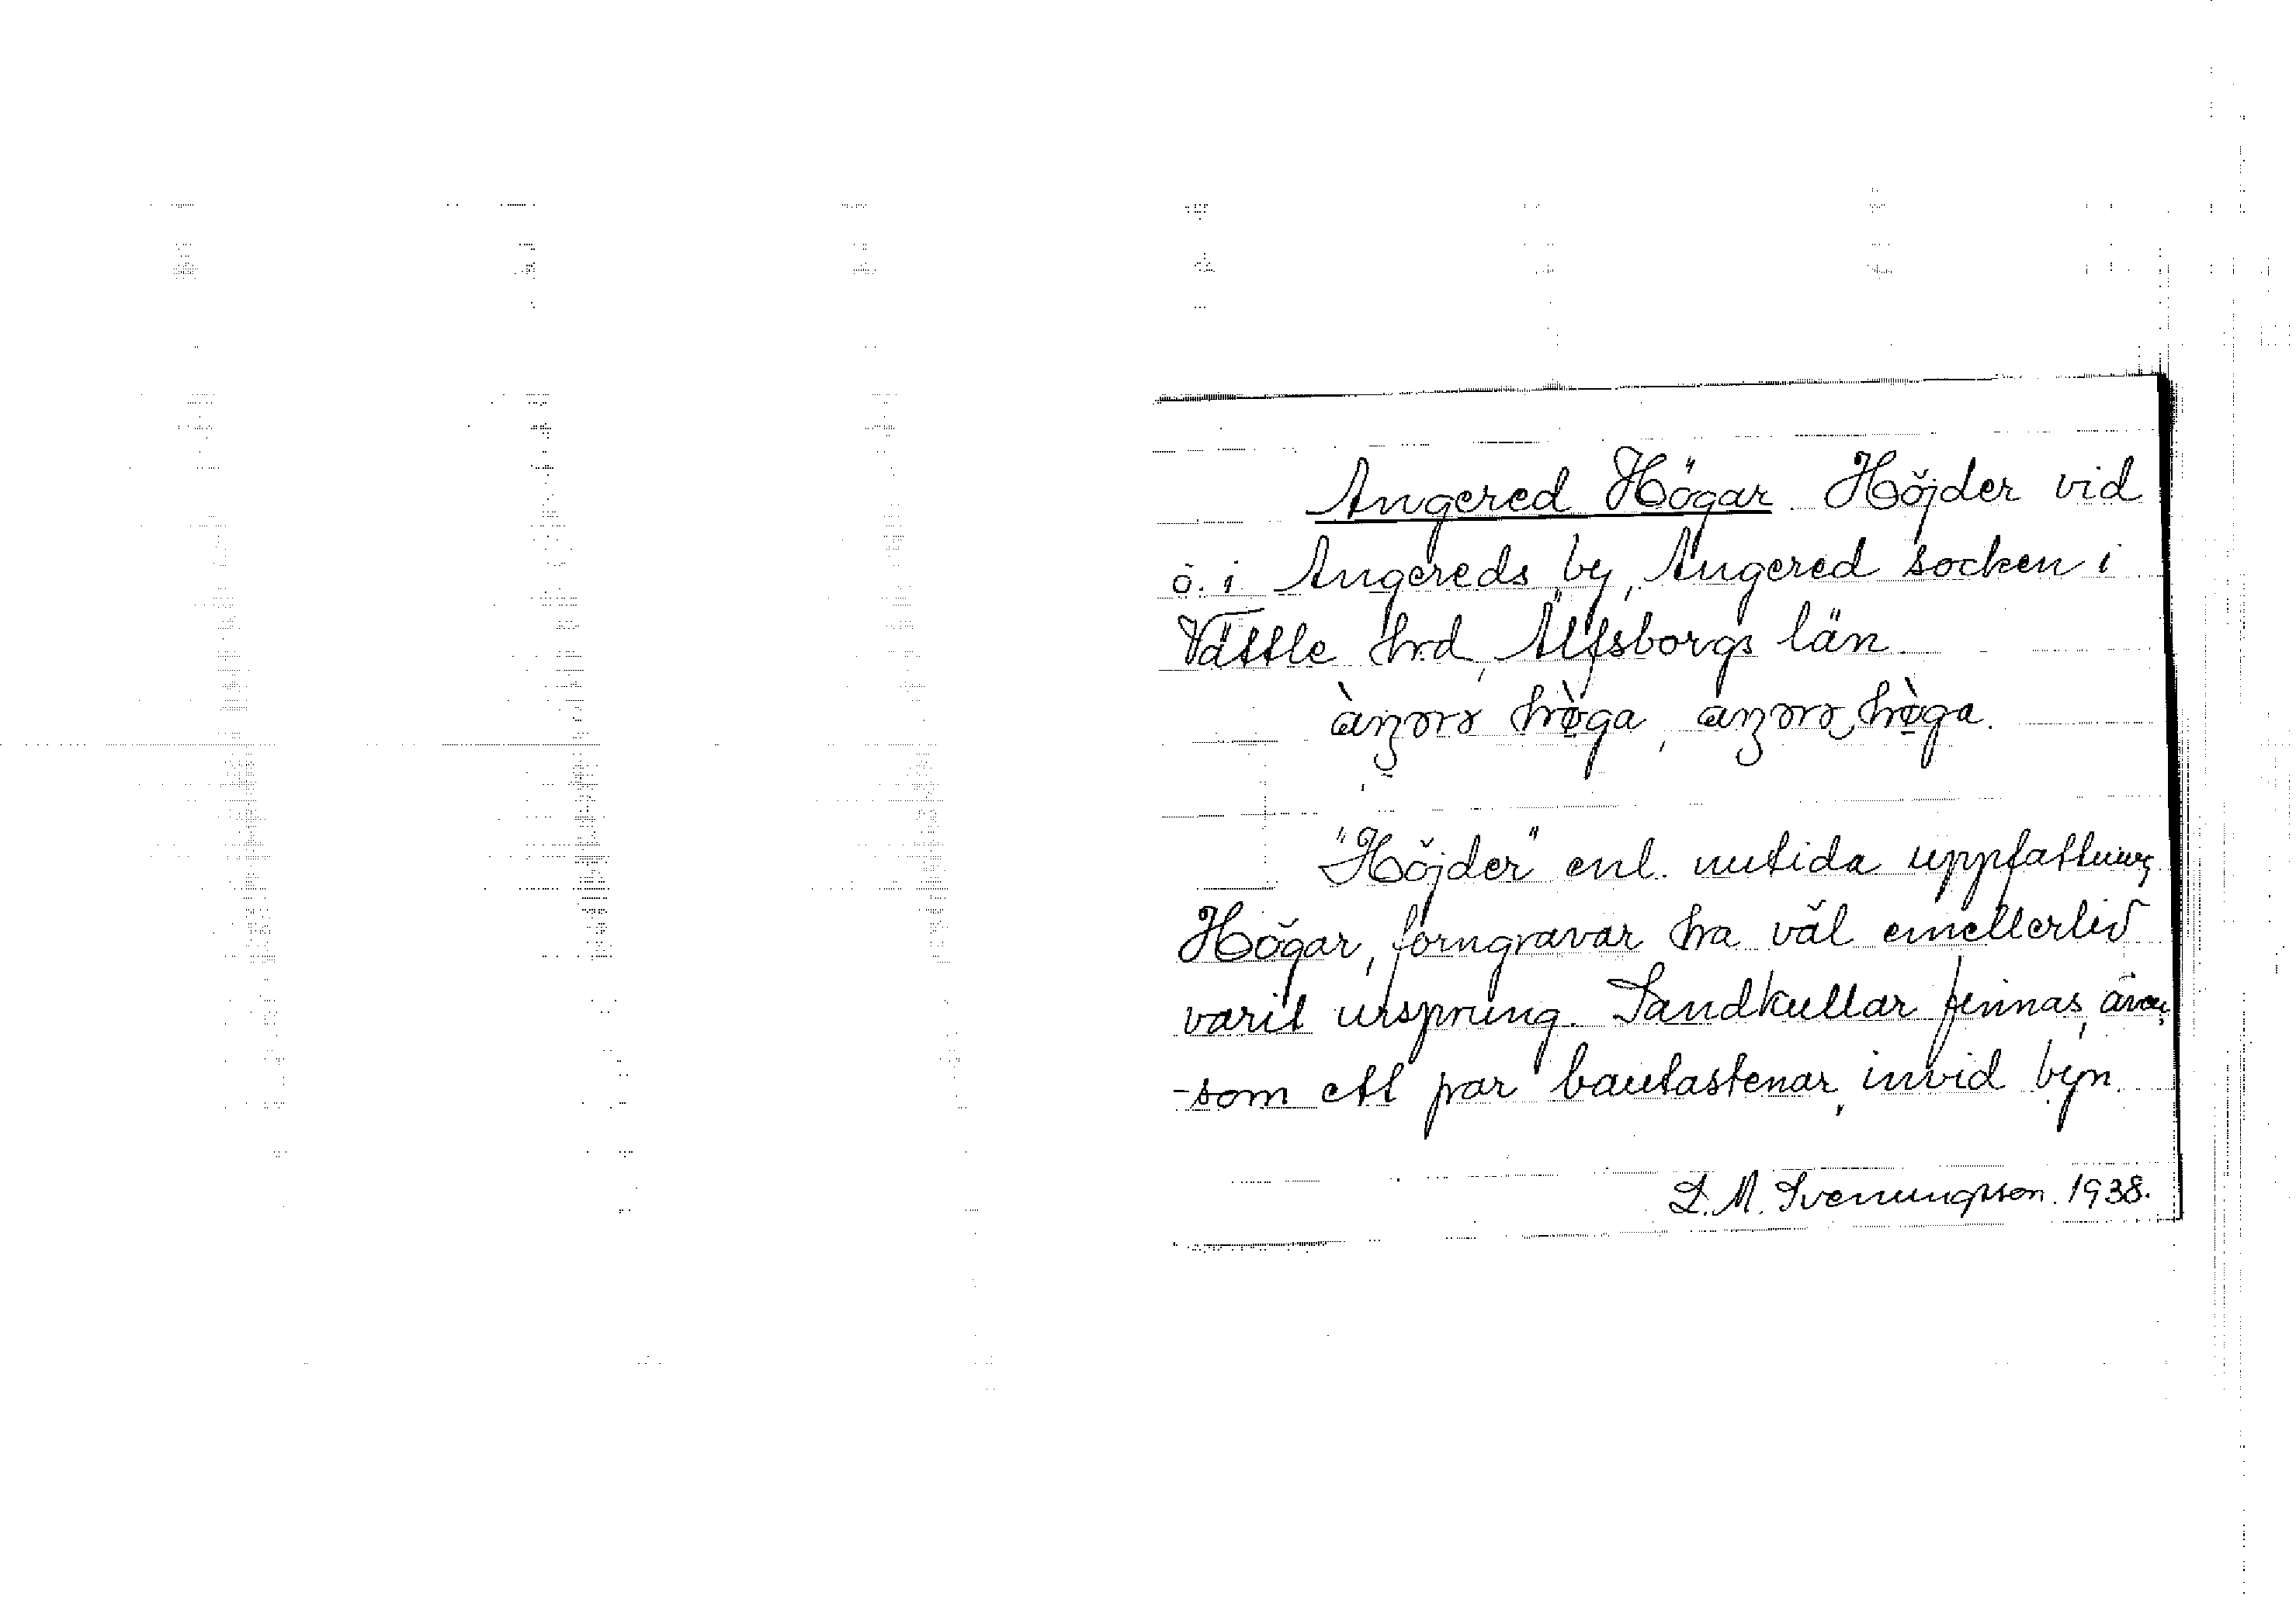 Angered Högar Höjder vid
ö. i Angereds by, Angered socken i
Vättle hrd, Älfsborgs län.
"Höjder" enl. nutida uppfattning
Högar, forngravar ha väl emellertid
varit ursprung. Sandkullar finnas, även-
-som ett par bautastenar, invid byn.
L.M. Svenungsson. 1938.